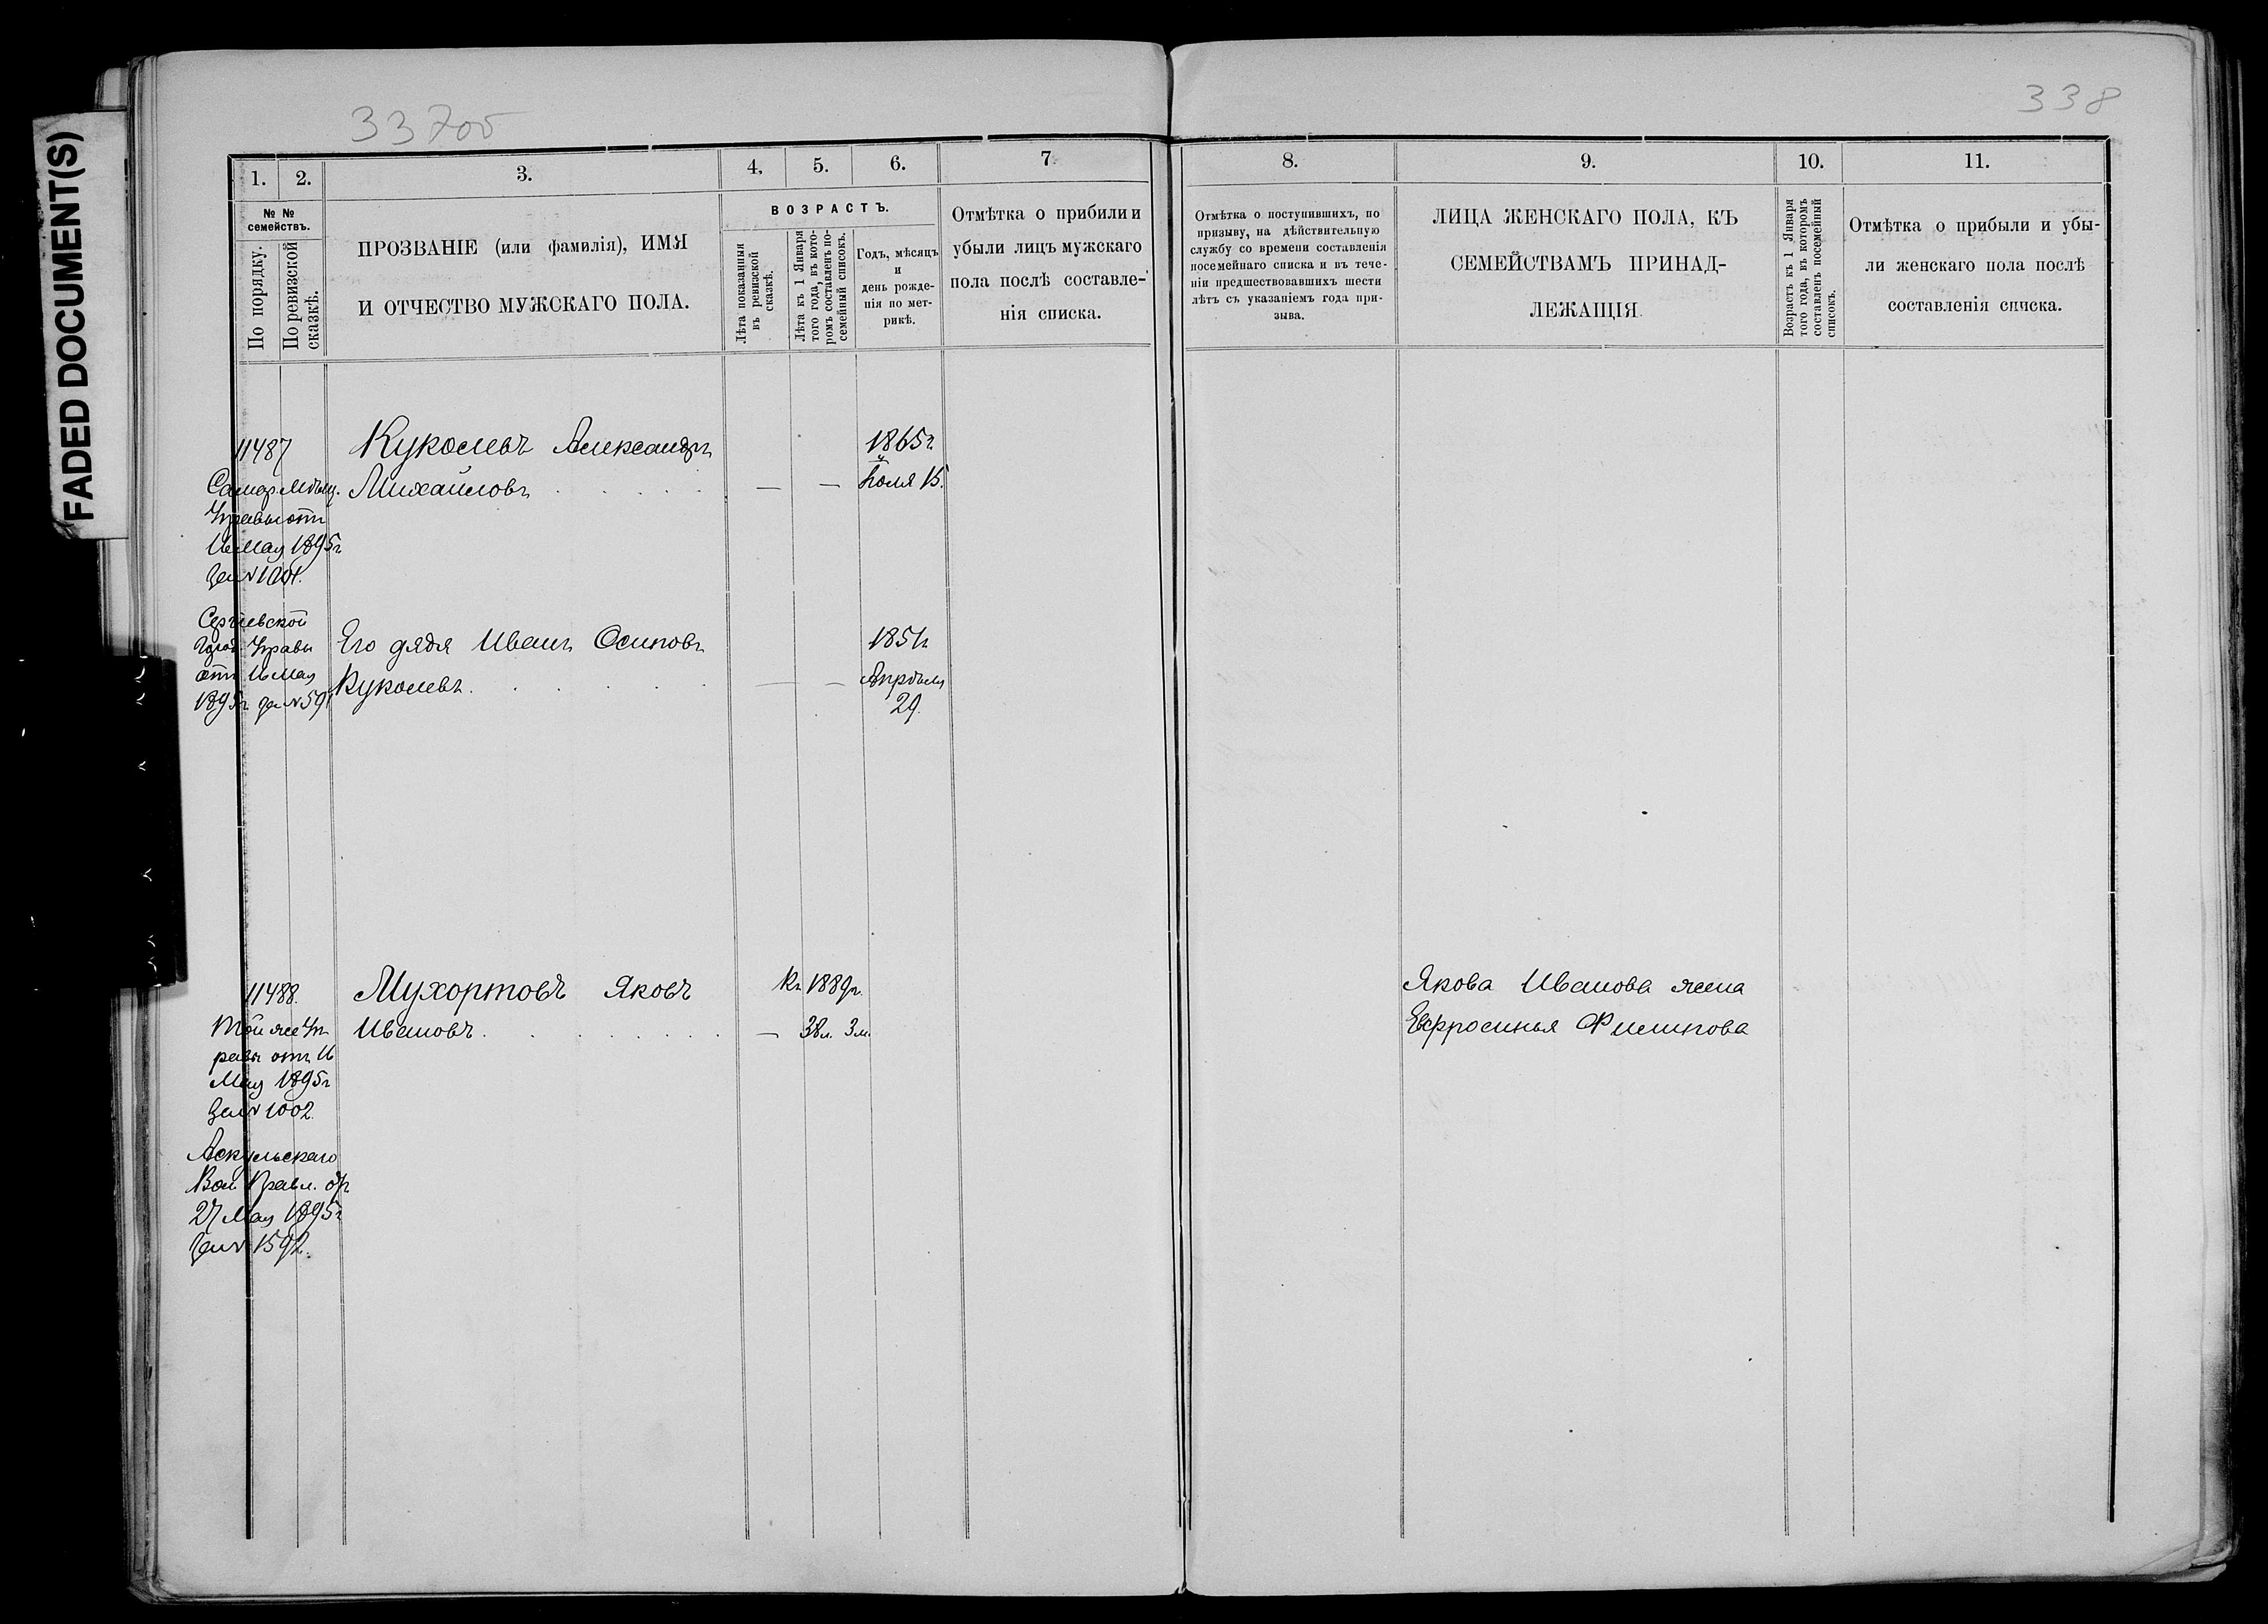 FADED DOCUMENT(S)
337об
338
1.
2.
3.
4.
5.
6.
7.
8.
9.
10.
11.
№ №
семействъ.
По порядку.
По ревизской
сказкѣ.
ПРОЗВАНІЕ (или фамилія), ИМЯ
И ОТЧЕСТВО МУЖСКАГО ПОЛА.
ВОЗРАСТЪ.
Лѣта показанныя
въ ревизской
сказкѣ.
Лѣта къ 1 Января
того года, въ кото-
ромъ составленъ по-
семейный списокъ.
Годъ, мѣсяцъ
и
день рожде-
нія по мет-
рикѣ.
Отмѣтка о прибыли и
убыли лицъ мужскаго
пола послѣ составле-
нія списка.
Отмѣтка о поступившихъ, по
призыву, на дѣйствительную
службу со времени составленія
посемейнаго списка и въ тече-
ніи предшествовавшихъ шести
лѣтъ съ указаніемъ года при-
зыва.
ЛИЦА ЖЕНСКАГО ПОЛА, КЪ
СЕМЕЙСТВАМЪ ПРИНАД-
ЛЕЖАЩІЯ.
Возрастъ къ 1 Января
того года, въ которомъ
составленъ посемейный
списокъ.
Отмѣтка о прибыли и убы-
ли женскаго пола послѣ
составленія списка.
11487
Куколевъ Александръ
1865г.
Самар. Мѣщ.
Михайловъ . . . . . — — Іюля 15.
Управы отъ
16 Мая 1895г
за №1001.
Сергіевской
Город. Управы
Его дядя Иванъ Осиповъ
1851г.
отъ 16 Мая
Куколевъ . . . . . — — Апрѣля
1895г. за №591
29.
11488.
Мухортовъ Яковъ
Къ 1889г.
Якова Иванова жена
Той же Уп
Ивановъ . . . . . . — 38л. 3м.
Евфросинья Филипова
равы отъ 16
Мая 1895г
За № 1002.
Аскульскаго
Вол. Правл. отъ
27 Мая 1895г
За № 1592.